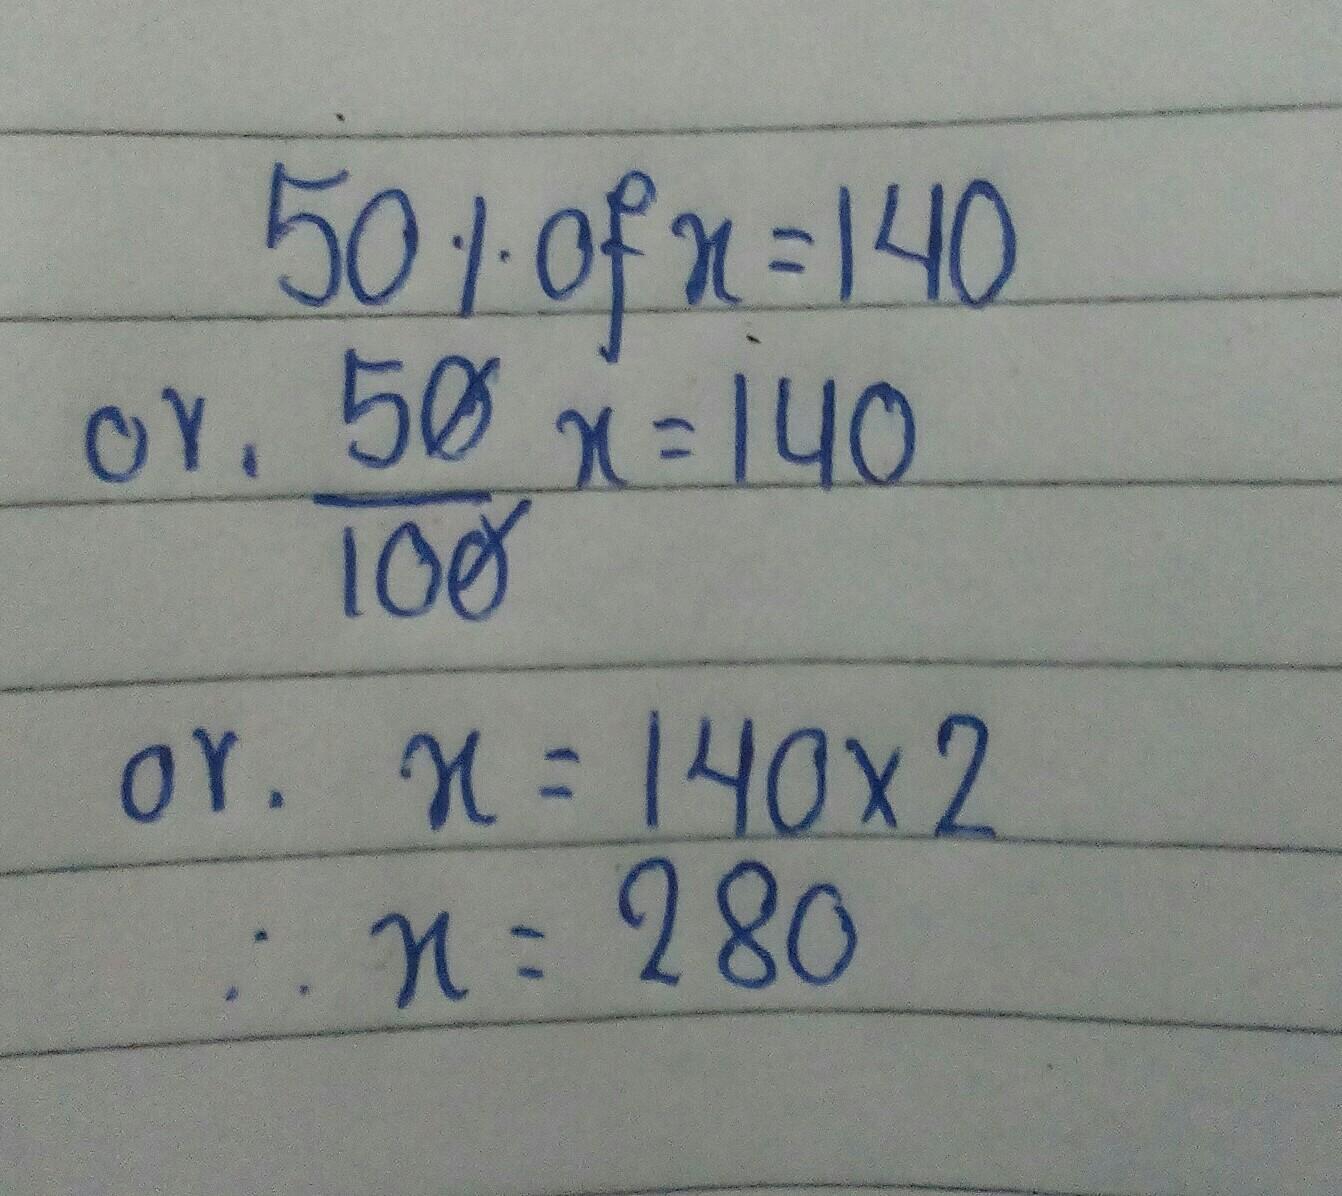 50% of x = 140
or, 50/100 x = 140
or. x = 140 x 2
∴ x = 280